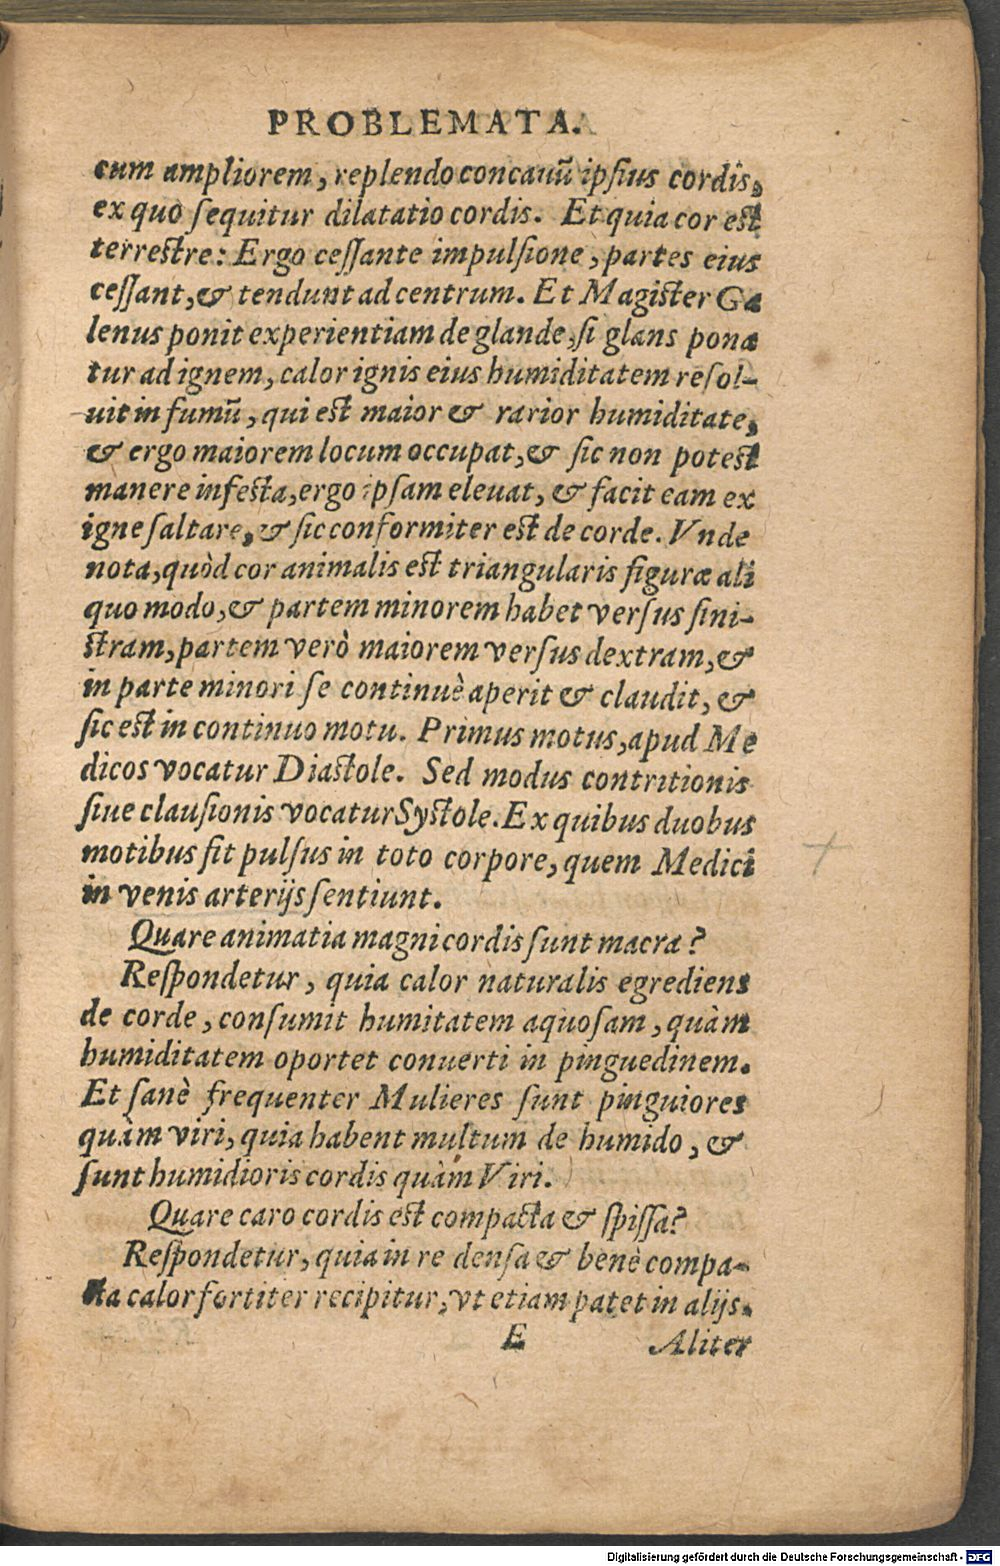 PROBLEMATA.
cum ampliorem, replendo concauũ ipſius cordis,
ex quo ſequitur dilatatio cordis. Et quia cor eſt
terreſtre: Ergo ceſſante impulſione, partes eius
ceſſant, & tendunt ad centrum. Et Magiſter Ga
lenus ponit experientiam de glande, ſi glans pona
tur ad ignem, calor ignis eius humiditatem reſol-
uit in fumũ, qui eſt maior & rarior humiditate,
& ergo maiorem locum occupat, & ſic non poteſt
manere infeſta, ergo ipſam eleuat, & facit eam ex
igne ſaltare, & ſic conformiter eſt de corde. Vnde
nota, quòd cor animalis eſt triangularis figuræ ali
quo modo, & partem minorem habet verſus ſini-
ſtram, partem verò maiorem verſus dextram, &
in parte minori ſe continuè aperit & claudit, &
ſic eſt in continuo motu. Primus motus, apud Me
dicos vocatur Diaſtole. Sed modus contritionis
ſiue clauſionis vocatur Syſtole. Ex quibus duobus
motibus fit pulſus in toto corpore, quem Medici
in venis arterijs ſentiunt.
Quare animatia magni cordis ſunt macra?
Reſpondetur, quia calor naturalis egrediens
de corde, conſumit humitatem aquoſam, quàm
humiditatem oportet conuerti in pinguedinem.
Et ſanè frequenter Mulieres ſunt pinguiores
quàm viri, quia habent multum de humido, &
ſunt humidioris cordis quàm Viri.
Quare caro cordis eſt compacta & ſpiſſa?
Reſpondetur, quia in re denſa & benè compa-
cta calor fortiter recipitur, vt etiam patet in alijs.
E Aliter
Digitalisierung gefördert durch die Deutsche Forschungsgemeinschaft - DFG